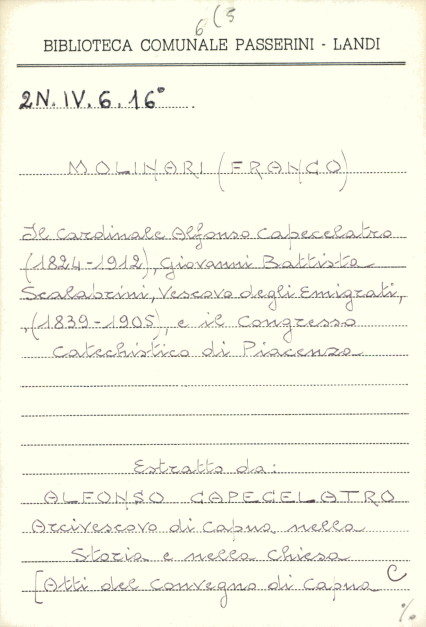 6(5
BIBLIOTECA COMUNALE PASSERINI - LANDI
2N.IV.6.16°
MOLINARI (FRANCO)
Il Cardinale Alfonso Capecelatro
(1824-1912), Giovanni Battista
Scalabrini, Vescovo degli Emigrati,
(1839-1905), e il Congresso
Catechistico di Piacenza
Estratto da:
ALFONSO CAPECELATRO
Arcivescovo di Capua nella
Storia e nella Chiesa
[Atti del Convegno di Capua C
%